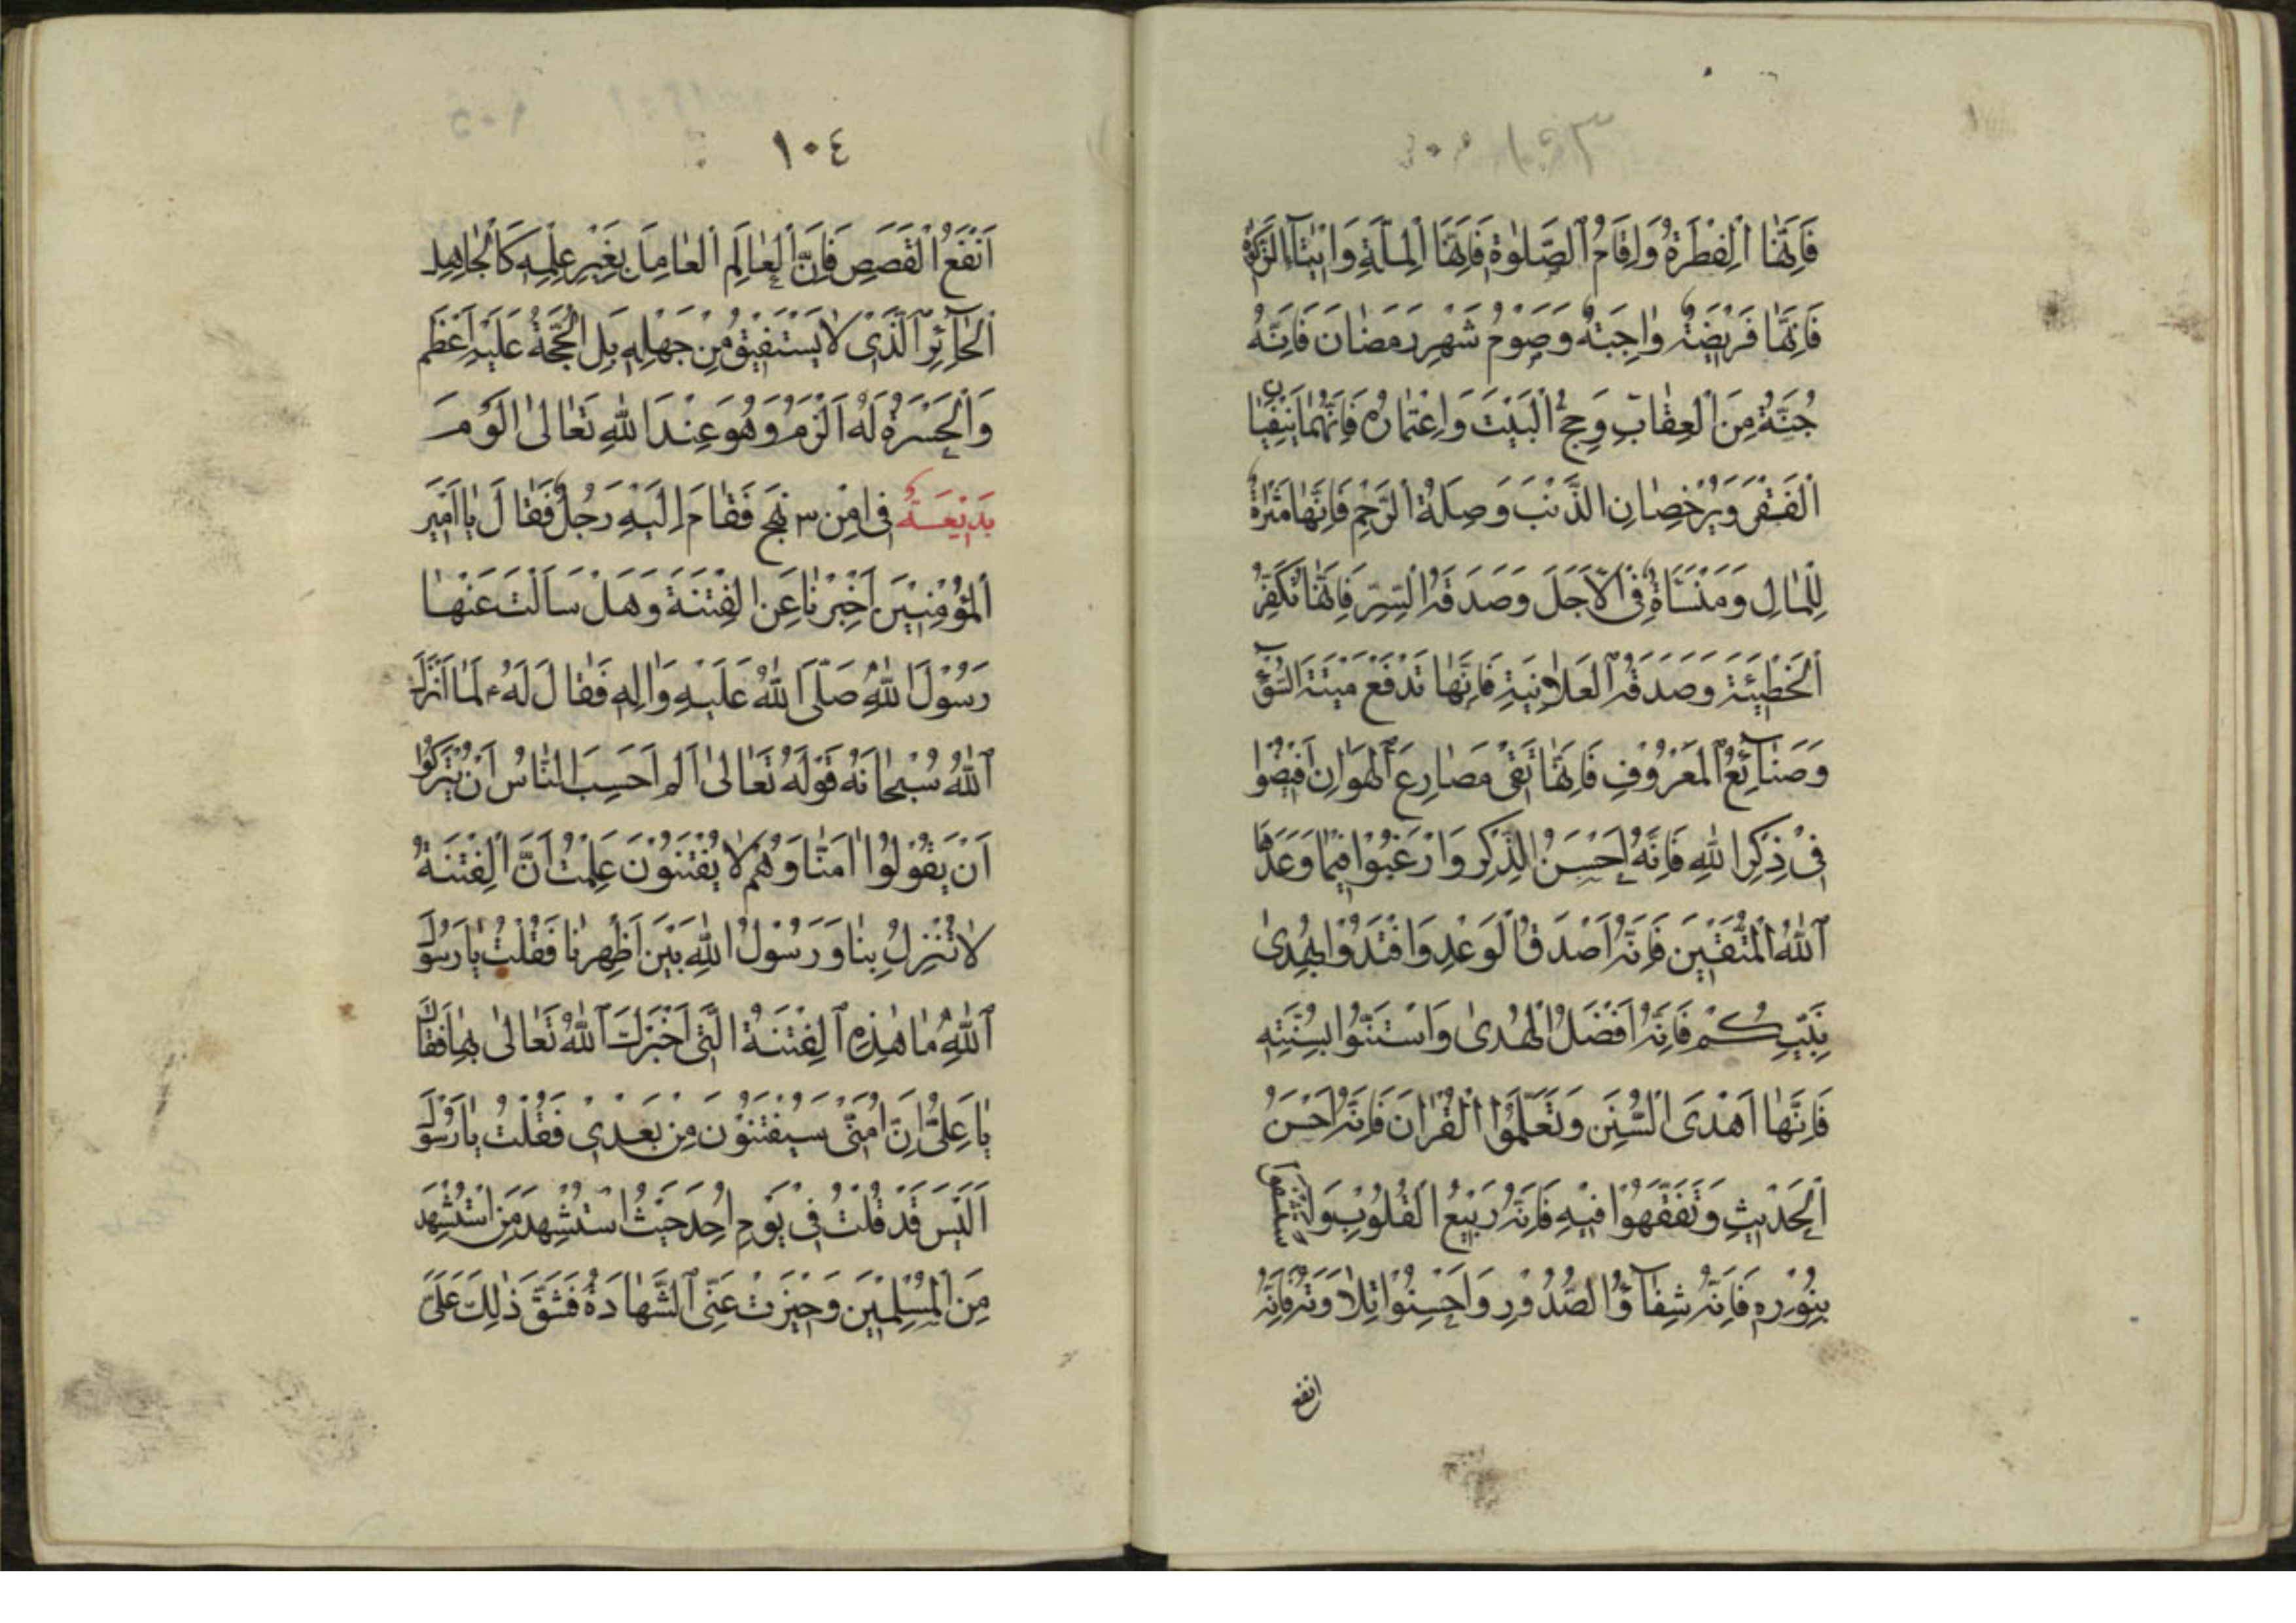 ١٠٣
فَاِنَّهَا الْفِطْرَةُ وَاِقَامُ الصَّلٰوةِ فَاِنَّهَا الْمِلَّةِ وَاِيْتَآءِ الزَّكٰوةِ
فَاِنَّهَا فَرِيْضَةٌ وٰاجِبَةٌ وَصَوْمُ شَهْرِ رَمَضٰانَ فَاِنَّهُ
جُنَّةٌ مِنَ الْعِقٰابِ وَحِجُّ الْبَيْتَ وَاِعْتِمٰارُهُ فَاِنَّهُمٰا يَنْفِيٰانِ
الْفَقْرَ وَيَرْخِصٰانِ الذَّنْبَ وَصِلَةُ الرَّحِمِ فَاِنَّهٰا مَثْرٰاةٌ
لِلْمٰالِ وَمَنْسَاَةٌ فِى الْاَجَلَ وَصَدَقَةُ السِّرِّ فَاِنَّهٰا تُكَفِّرُ
الْخَطِيْئَةَ وَصَدَقَةُ الْعَلاٰنِيَةِ فَاِنَّهٰا تَدْفَعُ مَيْتَةَ السُّوْٓءِ
وَصَنٰآئِعُ الْمَعْرُوْفِ فَاِنَّهٰا تَقِىْ مَصٰارِعَ الْهَوٰانِ اَفِيْضُوْا
فِىْ ذِكْرِ اللّٰهِ فَاِنَّهُ اَحْسَنُ الذِّكْرِ وَارْغَبُوْا فِيْمٰا وَعَدَهَا
اللّٰهُ الْمُتَّقِيْنَ فَاِنَّهُ اَصْدَقُ الْوَعْدِ وَاقْتَدُوْا بِهُدىٰ
نَبِيِّكُمْ فَاِنَّهُ اَفْضَلُ الْهُدىٰ وَاسْتَنُّوْا بِسُنَّتِهِ
فَاِنَّهٰا اَهْدَى السُّنَنِ وَتَعَلَّمُوْا الْقُرْاٰنَ فَاِنَّهُ اَحْسَنُ
الْحَدِيْثِ وَتَفَقَّهُوْا فِيْهِ فَاِنَّهُ رَبِيْعُ الْقُلُوْبِ وَاسْتَشْفُوا
بِنُوْرِهِ فَاِنَّهُ شِفٰآؤُ الصُّدُوْرِ وَاَحْسِنُوْا تِلاٰوَتَهُ فَاِنَّهُ
انفع
١٠٤
اَنْفَعُ الْقَصَصِ فَاِنَّ الْعٰالِمَ الْعٰامِلَ بِغَيْرِ عِلْمِهِ كَالْجٰاهِلِ
الْحٰآئِرِ الَّذِىْ لاٰ يَسْتَفِيْقُ مِنْ جَهْلِهِ بَلِ الْحُجَّةُ عَلَيْهِ اَعْظَمُ
وَالْحَسْرَةُ لَهُ اَلْزَمُ وَهُوَ عِنْدَ اللّٰهِ تَعٰالىٰ اَلْوَمُ
بَدِيْعَةٌ فى امِنْ ٣ نهج فَقٰامَ اِلَيْهِ رَجُلٌ فَقٰالَ يٰا اَمِيْرَ
الْمُؤْمِنِيْنَ اَخْبِرْنٰا عَنِ الْفِتْنَةِ وَهَلْ سَاَلْتَ عَنْهٰا
رَسُوْلَ اللّٰهِ صَلَّى اللّٰهُ عَلَيْهِ وَاٰلِهِ فَقٰالَ لَهُ ء لَمّٰا اَنْزَلَ
اللّٰهُ سُبْحٰانَهُ قَوْلَهُ تَعٰالىٰ الم اَحَسِبَ النّٰاسُ اَنْ يُتْرَكُوْا
اَنْ يَقُوْلُوْا اٰمَنّٰا وَهُمْ لاٰ يُفْتَنُوْنَ عَلِمْتُ اَنَّ الْفِتْنَةَ
لاٰ تَنْزِلُ بِنٰا وَرَسُوْلُ اللّٰهِ بَيْنَ اَظْهِرِنٰا فَقُلْتُ يٰا رَسُوْلَ
اللّٰهِ مٰا هٰذِهِ الْفِتْنَةُ الَّتِى اَخْبَرَكَ اللّٰهُ تَعٰالىٰ بِهٰا فَقٰالَ
يٰا عَلِىُّ اِنَّ اُمَّتِىْ سَيُفْتَنُوْنَ مِنْ بَعْدِىْ فَقُلْتُ يٰا رَسُوْلَ
اَلَيْسَ قَدْ قُلْتَ فِىْ يَوْمِ اُحُدٍ حَيْثُ اسْتُشْهِدَ مَنِ اسْتُشْهِدَ
مِنَ الْمُسْلِمِيْنَ وَحِيْزَتْ عَنِّى الشَّهٰادَةُ فَشَقَّ ذٰلِكَ عَلَىَّ